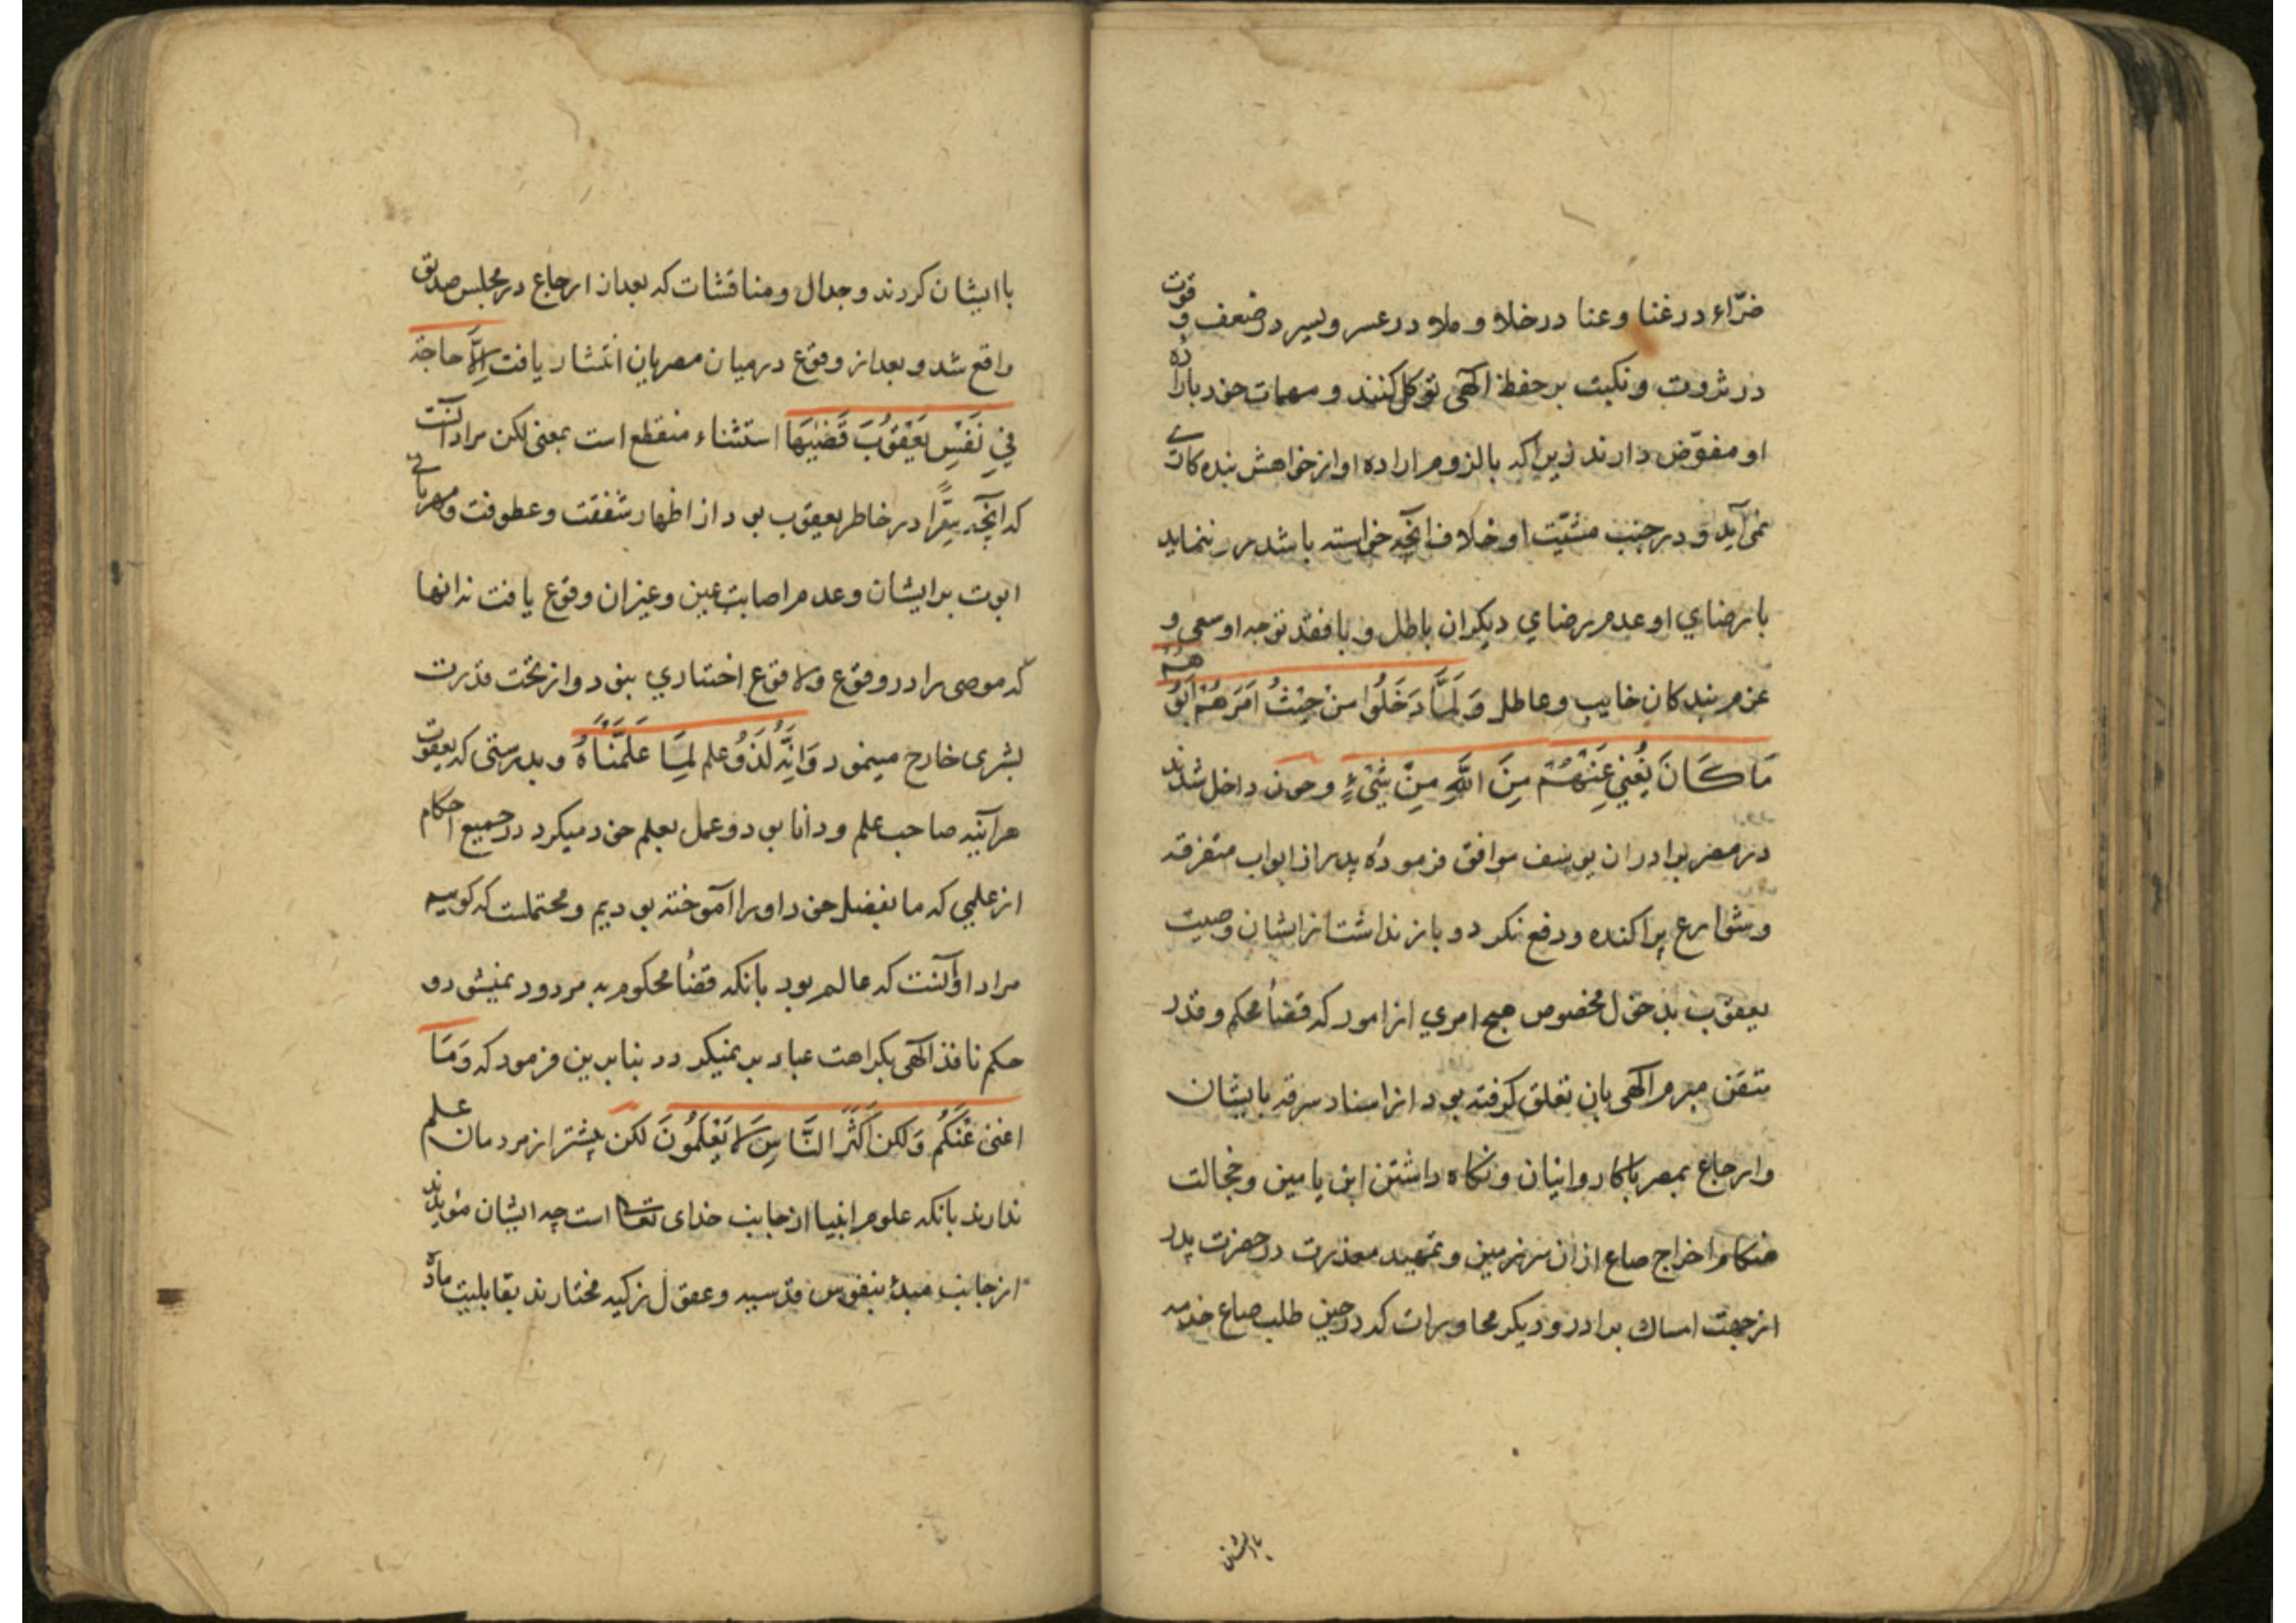 ضرّاء در غنا و عنا در خلا و ملا در عسر و یسر در ضعف و قوت
در ثروت و نکبت بر حفظ الهی توکل کنند و مهمات خود را باراده
او مفوّض دارند زیرا که بالزوم اراده او از خواهش بنده کاری
نمی آید و در جنب مشیّت او خلاف آنچه خواسته باشد مر ننماید
با رضای او عدم رضای دیکران باطل و با فقد توجه او سعی و
عزم بندکان خایب و عاطل وَلَمَّا دَخَلُوا مِنْ حَيْثُ اَمَرَهُمْ اَبُوهُمْ
مَا كَانَ يُغْنِي عَنْهُمْ مِنَ اللَّهِ مِنْ شَيْءٍ و چون داخل شدند
در مصر برادران یوسف موافق فرمودهٔ پدر از ابواب متفرقه
و شوارع پراکنده و دفع نکرد و باز نداشت از ایشان وصیت
یعقوب بدخول مخصوص هیچ امری از امور که قضأ محکم و قدر
متقن مبرم الهی بان تعلق کرفته بود از اسناد سرقه بایشان
و ارجاع بمصر با کاروانیان و نکاه داشتن ابن یامین و خجالت
هنکام اخراج صاع از ان سرزمین و تمهید معذرت در حضرت پدر
از جهت امساک برادر و دیکر محاورات که در حین طلب صاع خدمه
با ایشان
با ایشان کردند و جدال و مناقشات که بعد از ارجاع در مجلس صدیق
واقع شد و بعد از وقوع در میان مصریان انتشار یافت اِلَّا حاجة
فِي نَفْسِ يَعْقُوبَ قَضَيٰهَا استثناء منقطع است بمعنی لکن مراد آنست
که آنچه سِرًّا در خاطر یعقوب بود از اظهار شفقت و عطوفت و مهربانی
ابوت بر ایشان و عدم اصابت عین و غیر ان وقوع یافت نه انها
که موصی را در وقوع و لا وقوع اختیاری نبود و از تحت قدرت
بشری خارج مینمود وَاِنَّهُ لَذُو علم لِمَا عَلَّمْنَاهُ و بدرستی که یعقوب
هر آینه صاحب علم و دانا بود و عمل بعلم خود میکرد در جمیع احکام
از علمی که ما بفضل خود او را آموخته بودیم و محتملست که کوییم
مراد او آنست که عالم بود بانکه قضأ محکوم به مردود نمیشود و
حکم نافذ الهی بکراهت عباد بر نمیکردد بنابرین فرمود که وَمَا
اغنی عَنْكُم وَلكن اَكْثَرَ النَّاسِ لَا يَعْلَمُونَ لکن بیشتر از مردمان علم
ندارند بانکه علوم انبیا از جانب خدای تعالی است چه ایشان مؤیدند
از جانب مبدأ بنفوس قدسیه و عقول زکیه مختارند بقابلیت ماده